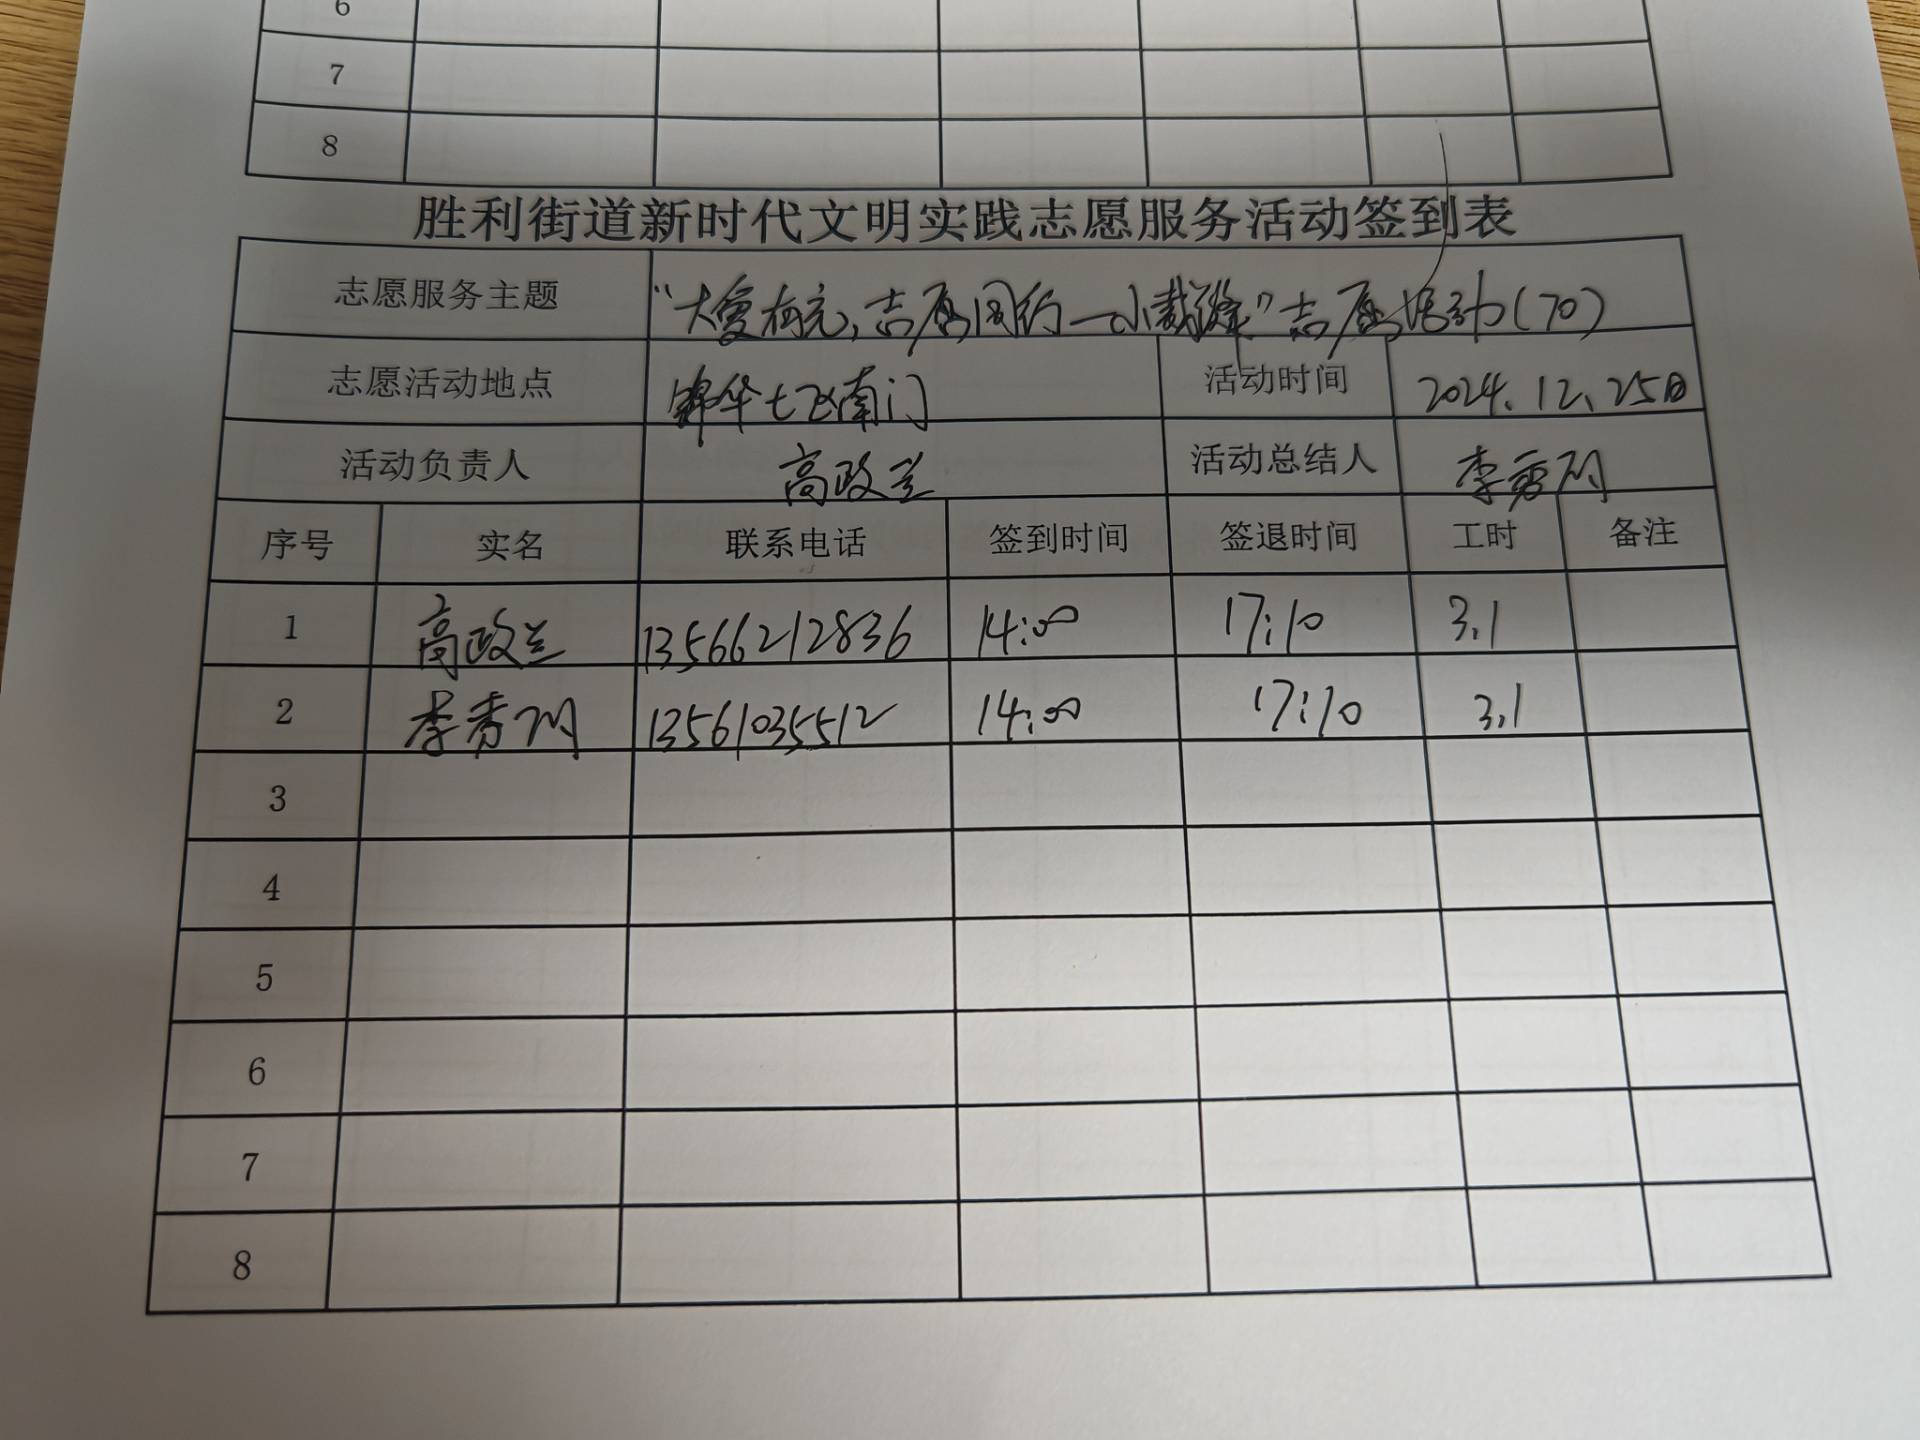 6
7
8
胜利街道新时代文明实践志愿服务活动签到表
志愿服务主题 "大爱有完,志愿同行—小裁缝"志愿活动(70)
志愿活动地点 锦华七区南门 活动时间 2024.12.25日
活动负责人 高政兰 活动总结人 李秀
序号 实名 联系电话 签到时间 签退时间 工时 备注
1 高政兰 13566212836 14:00 17:10 3.1
2 李秀 13561035512 14:00 17:10 3.1
3
4
5
6
7
8